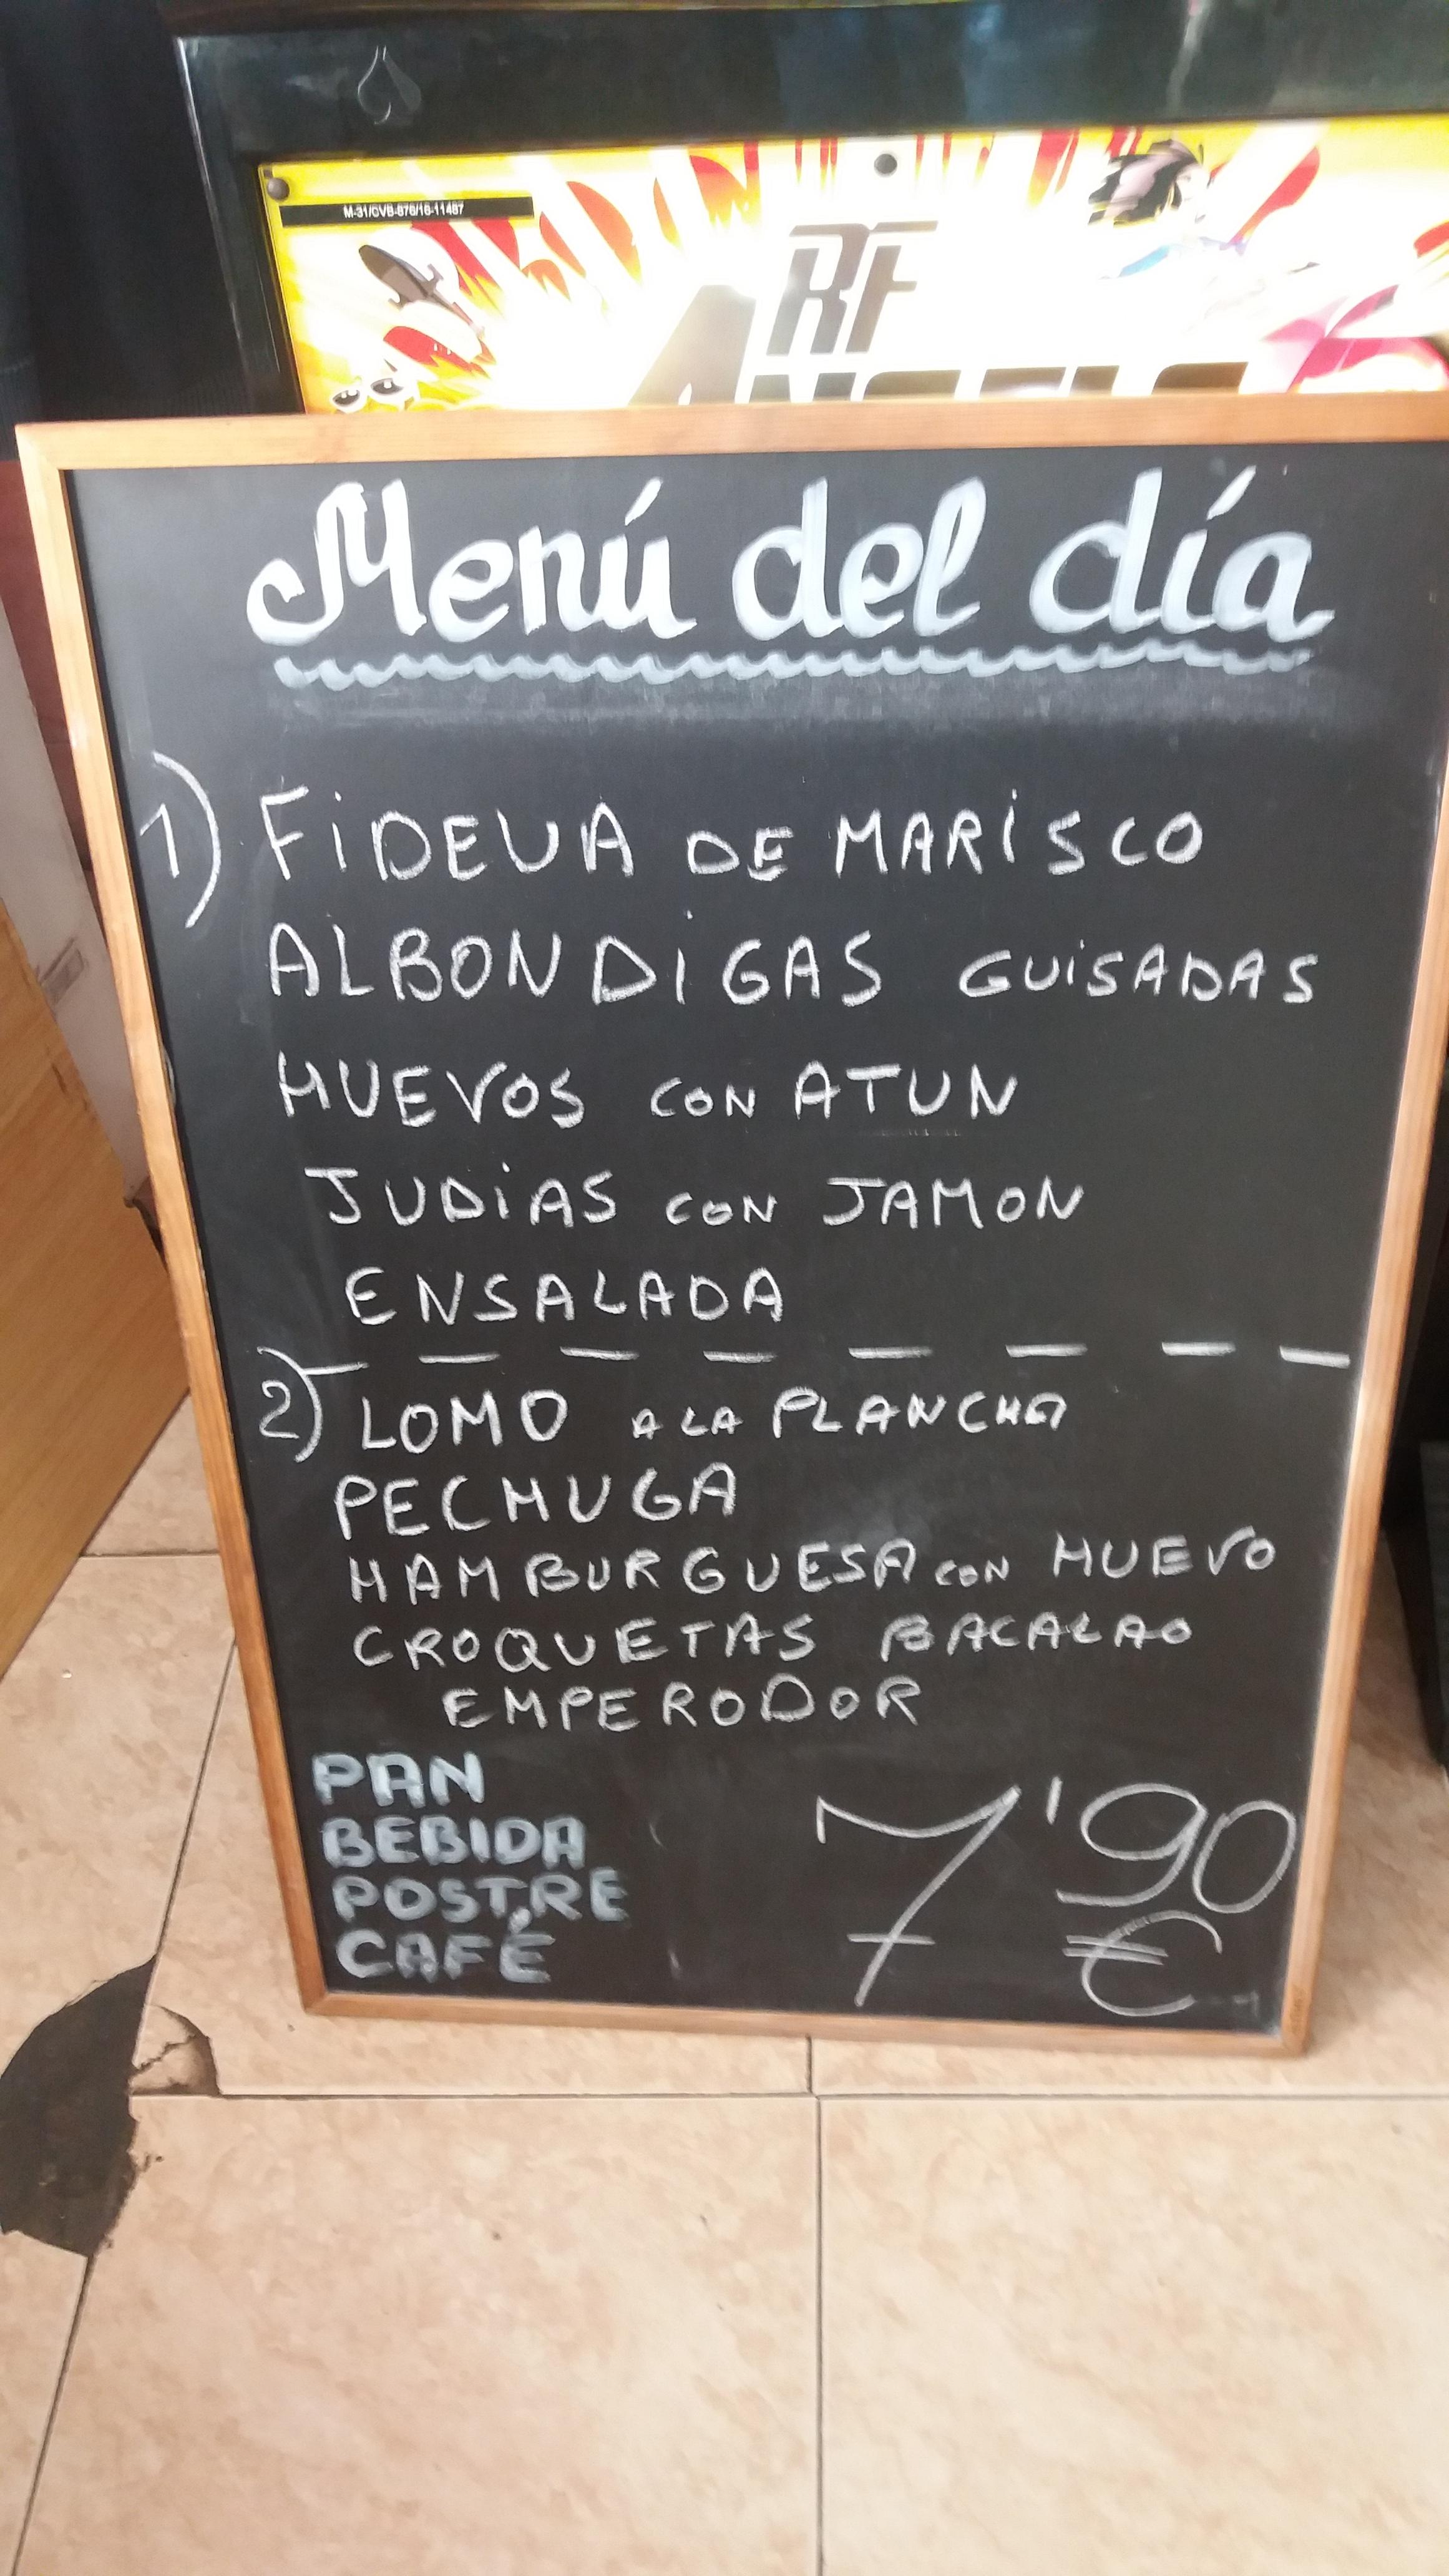 M-31/CVB-876/16-11487
RF
ANGELS
Menú del día
1) FiDEUA DE MARiSCO
ALBONDiGAS GUiSADAS
HUEVOS CON ATUN
JUDiAS CON JAMON
ENSALADA
2) LOMO A LA PLANCHA
PECHUGA
HAMBURGUESA CON HUEVO
CROQUETAS BACALAO
EMPERODOR
PAN
BEBIDA
POSTRE
CAFÉ
7'90
€